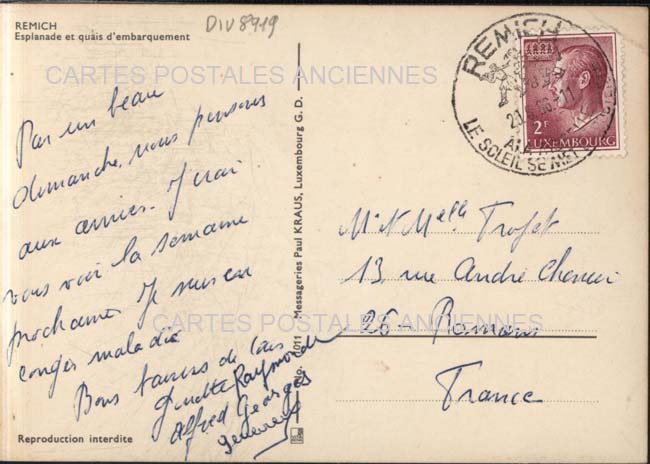 REMICH
Esplanade et quais d'embarquement
DIV8919
CARTES POSTALES ANCIENNES
Par un beau
dimanche, nous pensons
aux amies. J'irai
vous voir la semaine
prochaine. Je suis en
congés maladie
Bons baisers de tous
Ginette Raymonde
Alfred Georges
Geneviève
Reproduction interdite
No. 1011 Messageries Paul KRAUS, Luxembourg G. D.
REMICH
LE SOLEIL SE MET
2F
LUXEMBOURG
Mr et Melle
13, rue André Chenier
CARTES POSTALES ANCIENNES
26 - Romans
France